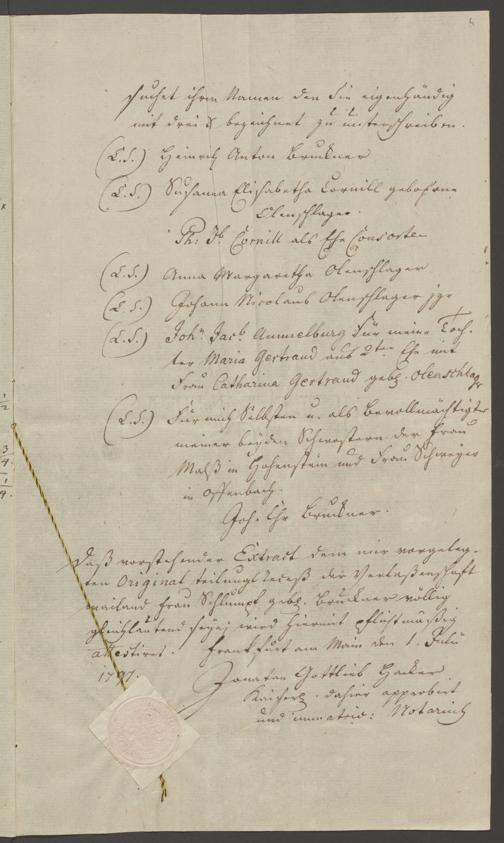 suchet ihren Namen den Sie eigenhändig
mit drei X bezeichnet zu unterschreiben.
(L.S.) Heinrich Anton Bruckner
(L.S.) Susanna Elisabetha Cornill gebohrne
Olenschlager.
Ph: Jb. Cornill als Ehe Consorte
(L.S.) Anna Margaretha Olenschlager
(L.S.) Johann Nicolaus Olenschlager jgr
(L.S.) John. Jacb. Ammelburg für meine Toch-
ter Maria Gertraud aus 2ten Ehe mit
Frau Catharina Gertraud gebl. Olenschlagr
(L.S.) Für mich Selbsten u. als Bevollmächtigter
meiner beyden Schwestern der Frau
in Hohenstein und Frau
in Offenbach.
Joh. Chr Bruckner.
Daß vorstehender Extract dem mir vorgeleg-
ten Original teilungs Recess der Verlaßenschaft
weiland Frau Schlumpf gebl. Bruckner völlig
gleichlautend seye, wird hiermit pflichtmäßig
attestiret. Franckfurt am Mayn den 1. July
1797.
Jonathan Gottlieb Hacker
Kaiserl. dahier approbirt
und immatric: Notarius